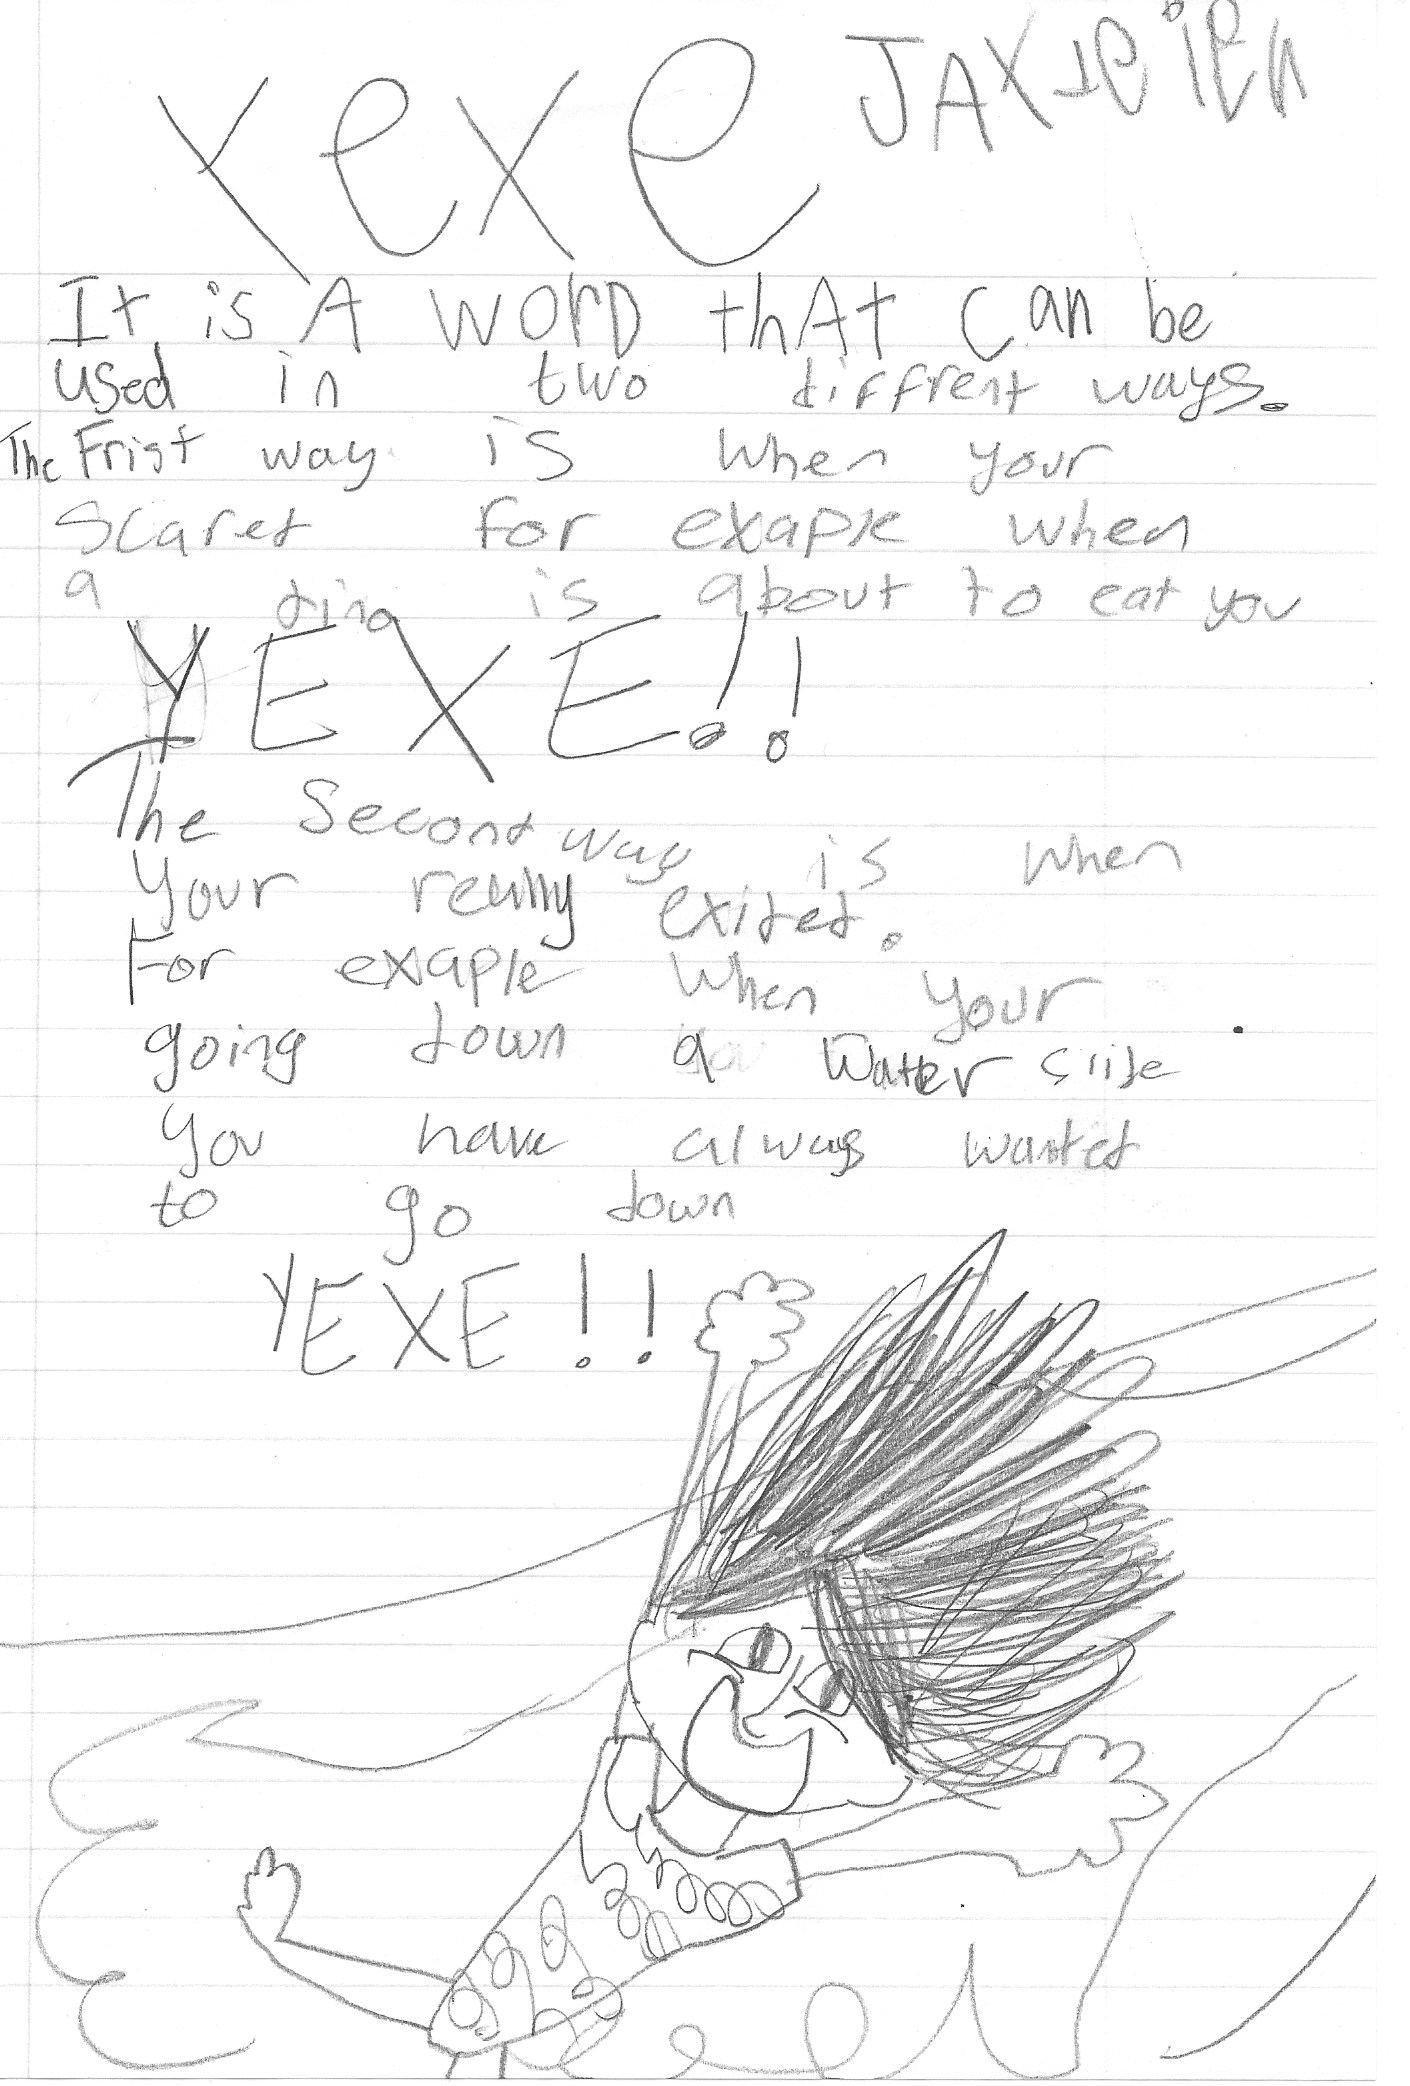 Yexe
It is A WorD thAt Can be
used in two diffrent ways.
The Frist way is when your
Scaret for exaple when
a is about to eat you
YEXE!!
The Second way is when
Your really exitet.
For exaple when your
going down a Water slide
You have always wantet
to go down
YEXE!!